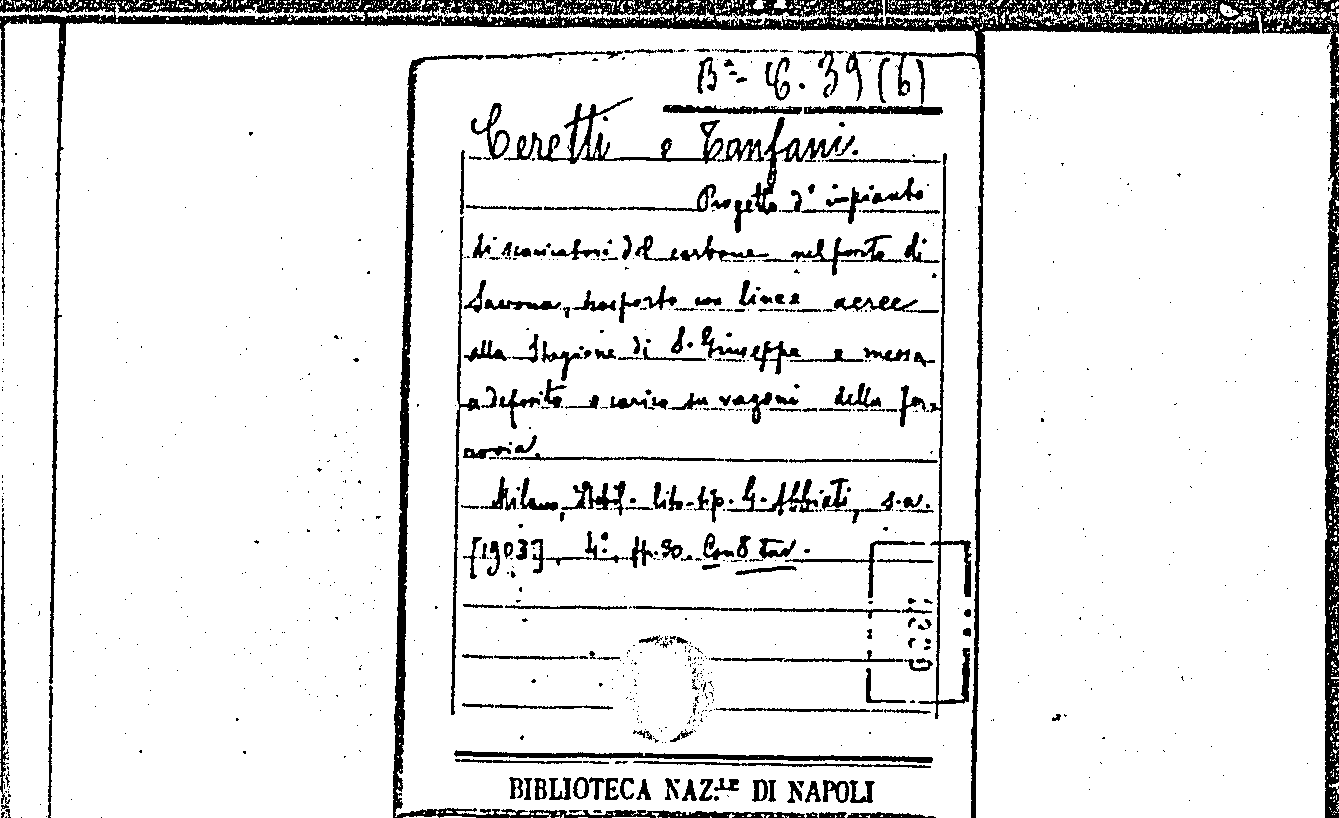 Bª- C. 39 (6)
Ceretti e Tanfani.
Progetto d'impianto
di scaricatori del carbone nel porto di
Savona, trasporto con linee aeree
alla Stazione di S. Giuseppe e messa
a deposito e carico su vagoni della fer-
rovia.
Milano, Stabil- lito-tip. G. Abbiati, s.a.
[1903], 4°, pp. 30. Con 8 Tav.
BIBLIOTECA NAZ.LE DI NAPOLI